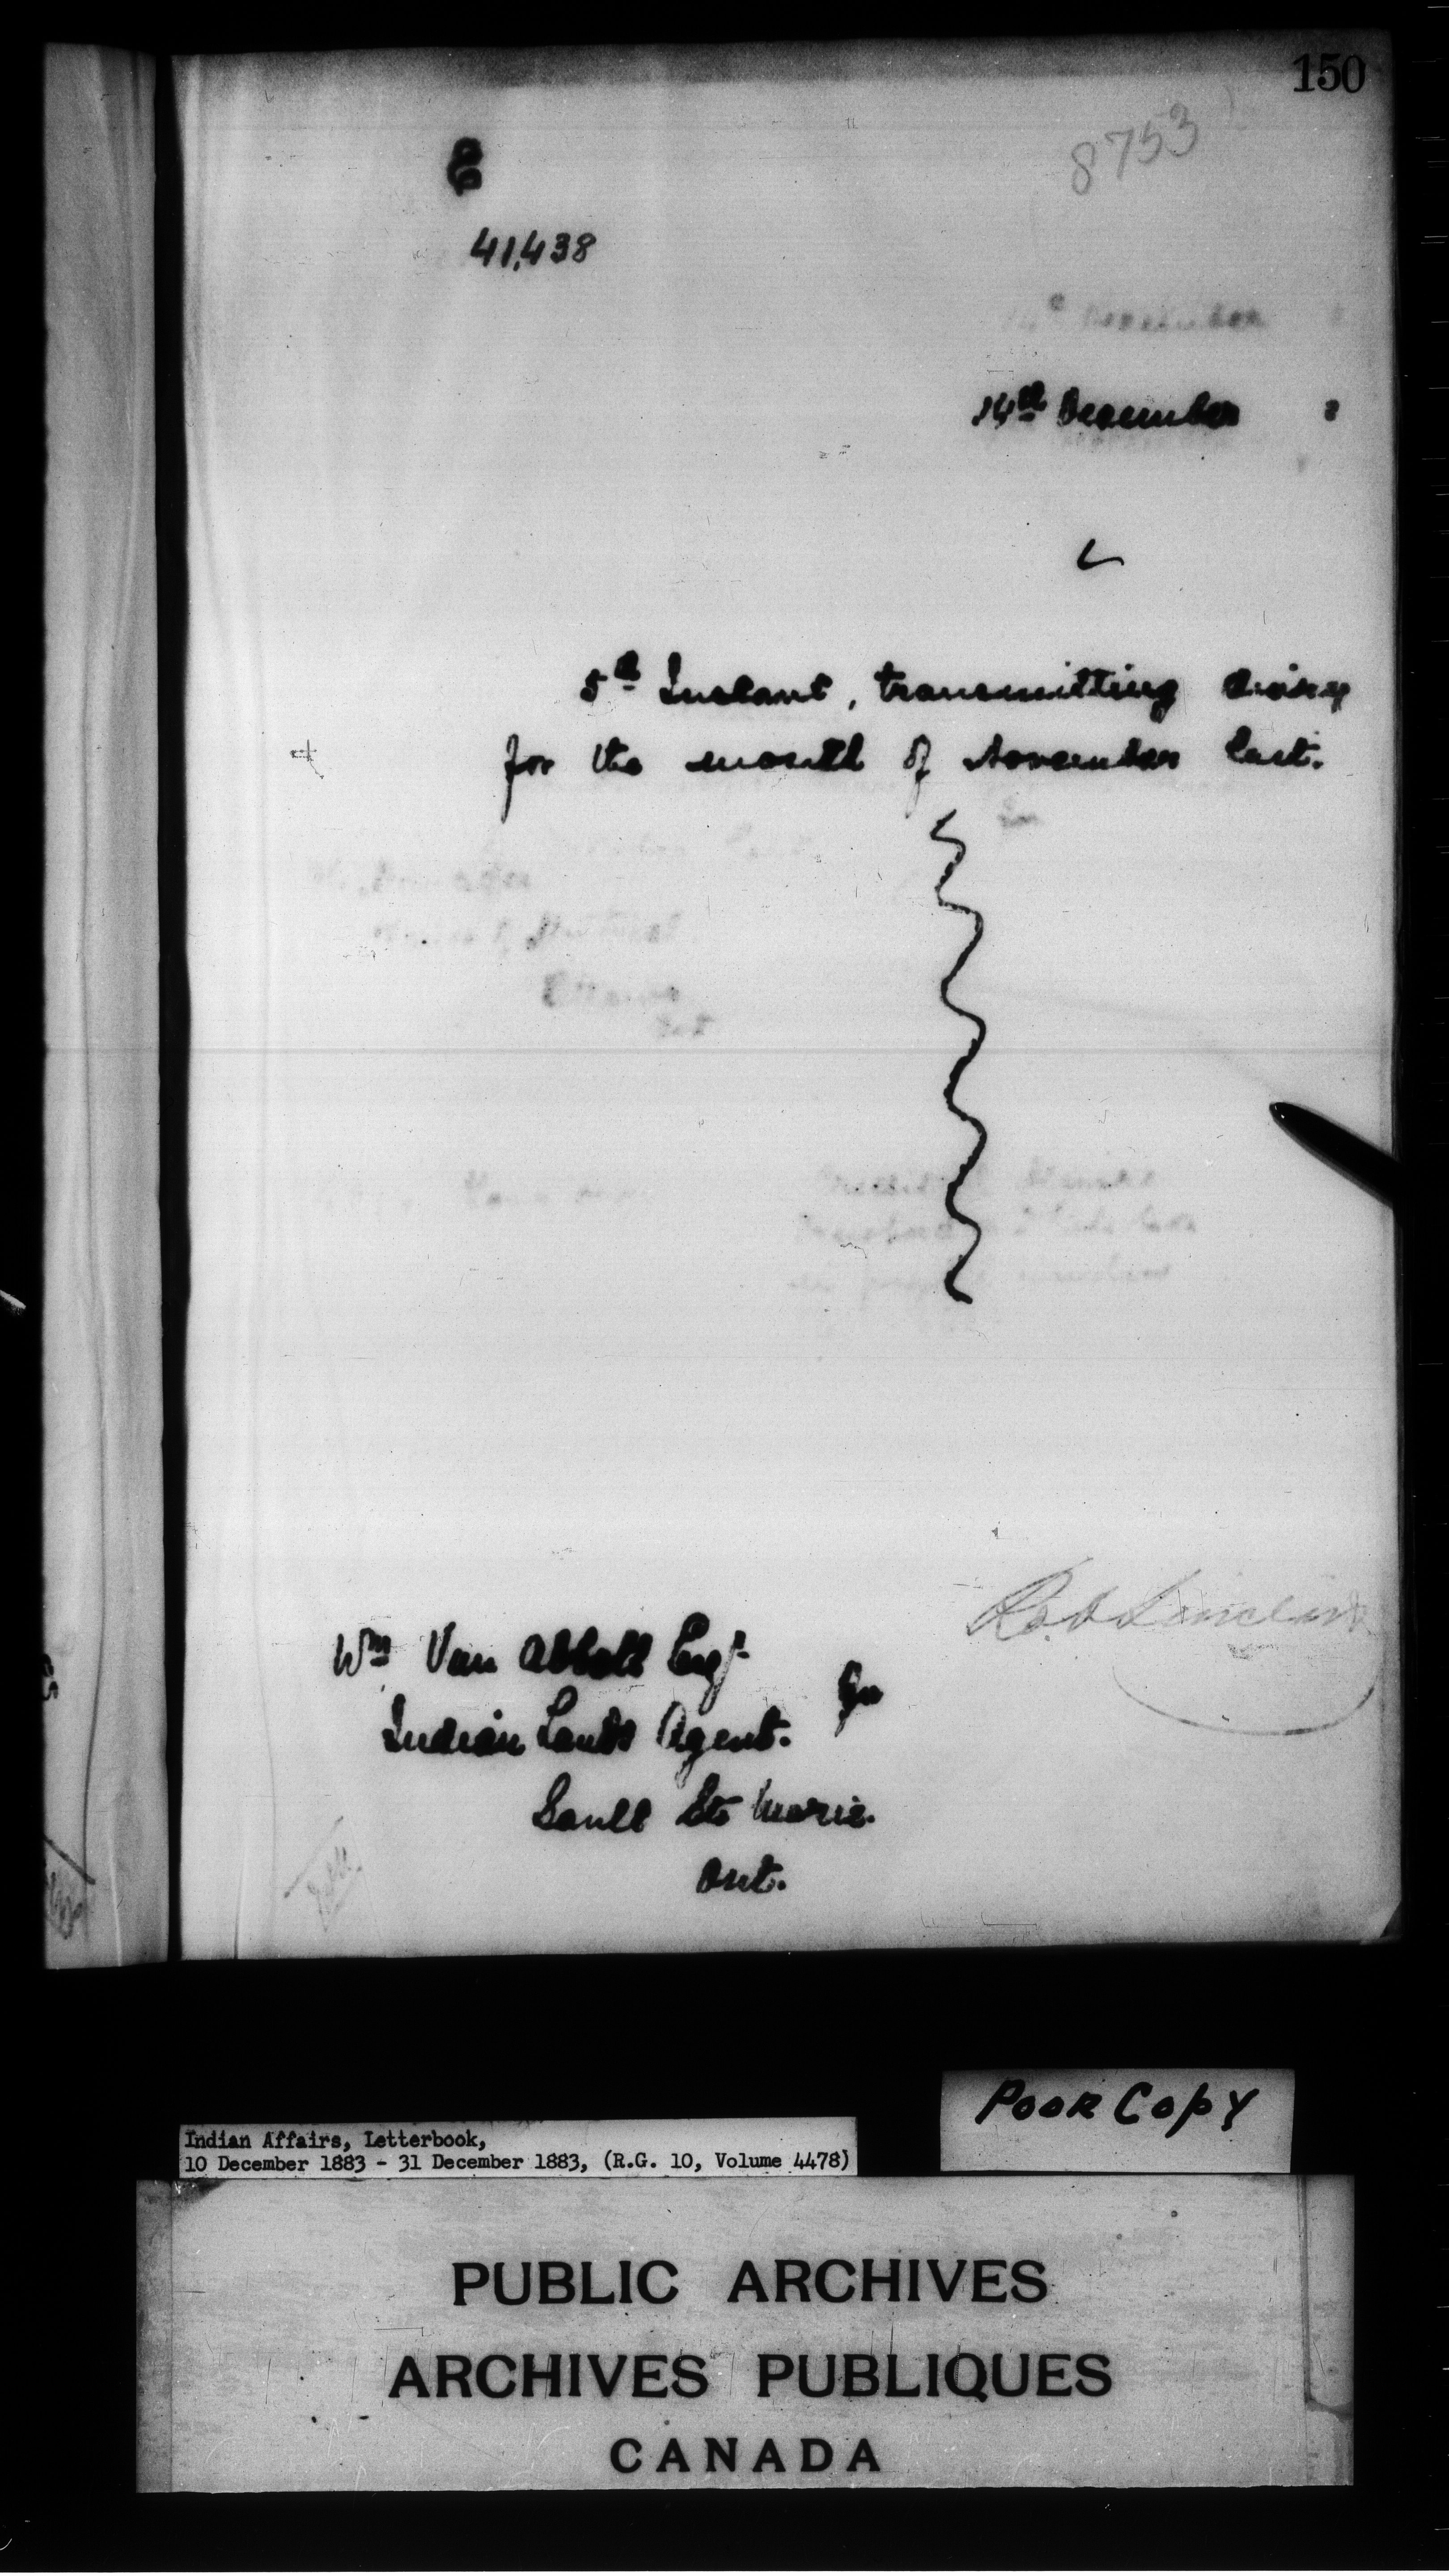 150
8753
41,438
14th December 3
5th Instant, transmitting diary
for the month of November last.
Robt Sinclair
Wm Van Abbott Esqr
for
Indian Lands Agent.
Sault Ste Marie.
Ont.
Poor Copy
Indian Affairs, Letterbook,
10 December 1883 - 31 December 1883, (R.G. 10, Volume 4478)
PUBLIC ARCHIVES
ARCHIVES PUBLIQUES
CANADA